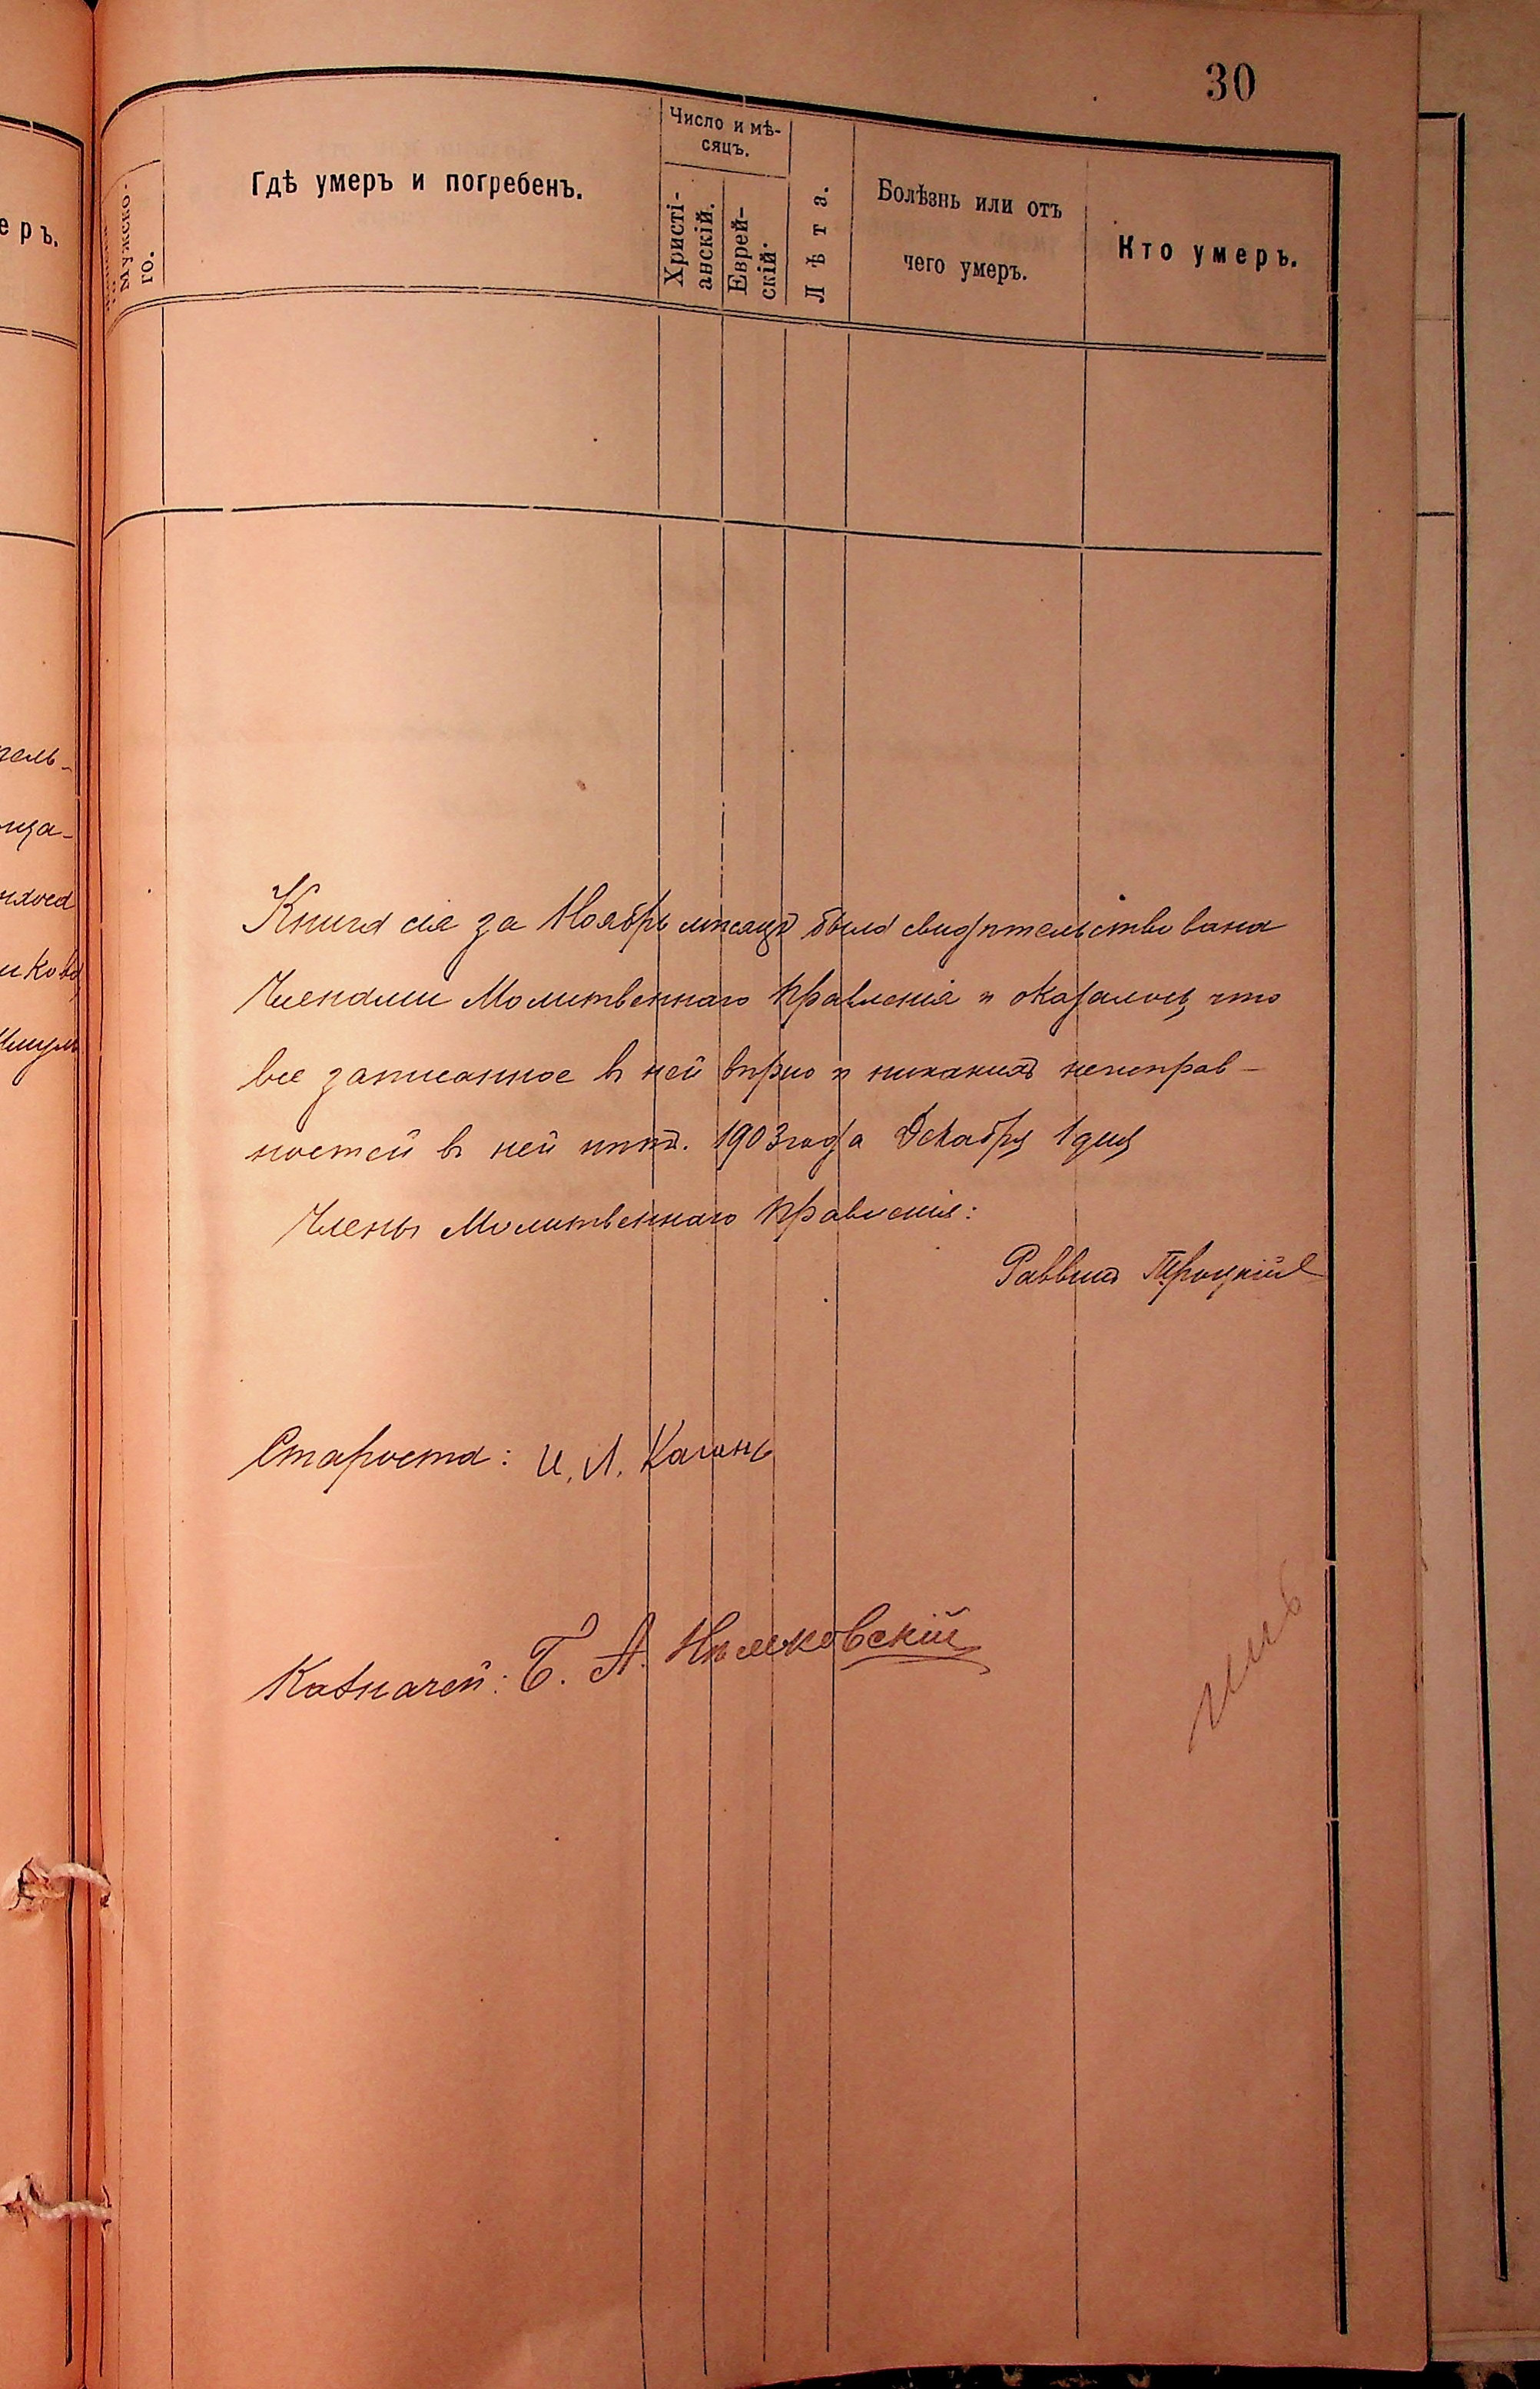 30
еръ.
Мужско-
го.
Гдѣ умеръ и погребенъ.
Число и мѣ-
сяцъ.
Христі-
анскій.
Еврей-
скій.
Лѣта.
Болѣзнь или отъ
чего умеръ.
Кто умеръ.
Книга сія за Ноябрь мѣсяцъ была свидѣтельствована
Членами Молитвеннаго Правленія и оказалось, что
все записанное въ ней вѣрно и никакихъ неисправ-
ностей въ ней нѣтъ. 1903 года Декабря 1 дня
Члены Молитвеннаго Правленія:
Раввинъ Троцкій
Староста: И. Л. Каганъ
Казначей: Б. А. Нѣмковскій